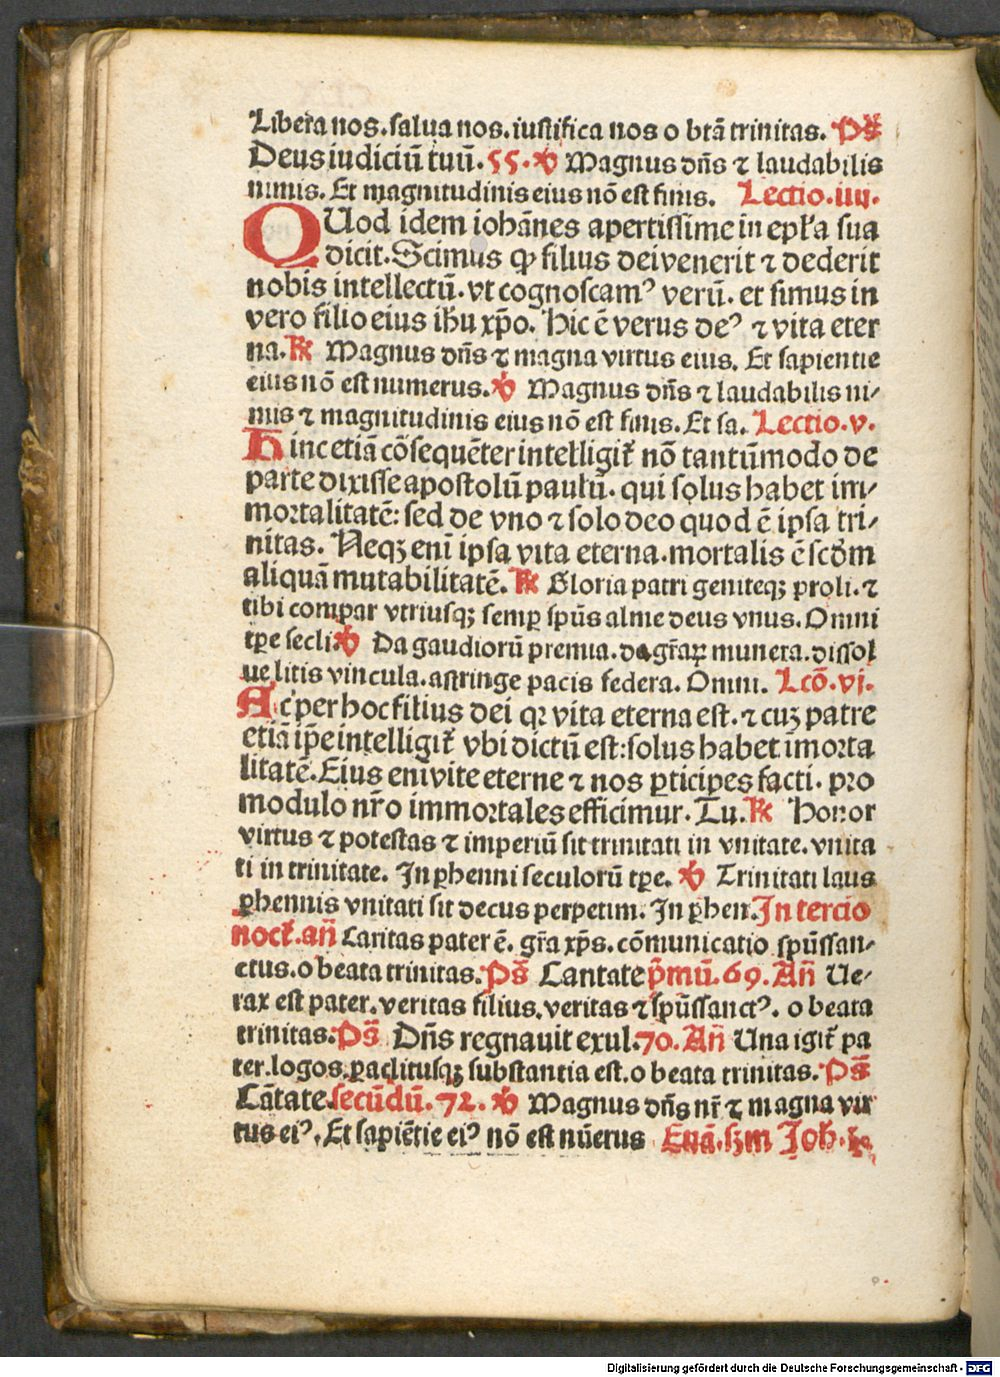 Libera nos. salua nos. iustifica nos o btā trinitas. Ps̄
Deus iudiciū tuū. 55. ℣ Magnus dn̄s ⁊ laudabilis
nimis. Et magnitudinis eius nō est finis. Lectio. iiij.
QUod idem iohānes apertissime in epl̄a sua
dicit. Scimus ꝙ filius dei venerit ⁊ dederit
nobis intellectū. vt cognoscamꝰ verū. et simus in
vero filio eius ihū xp̄o. Hic ē verus deꝰ ⁊ vita eter
na. ℟ Magnus dn̄s ⁊ magna virtus eius. Et sapientie
eius nō est numerus. ℣ Magnus dn̄s ⁊ laudabilis ni-
mis ⁊ magnitudinis eius nō est finis. Et sa. Lectio. v.
Hinc etiā cōsequēter intelligit̄ nō tantūmodo de
parte dixisse apostolū paulū. qui solus habet im-
mortalitatē: sed de vno ⁊ solo deo quod ē ipsa tri-
nitas. Neqꝫ eni ipsa vita eterna. mortalis ē scd̄m
aliquā mutabilitatē. ℟ Gloria patri geniteqꝫ proli. ⁊
tibi compar vtriusqꝫ semp̄ spūs alme deus vnus. Omni
tꝑe secli. ℣ Da gaudiorū premia. da gr̄aꝝ munera. dissol
ue litis vincula. astringe pacis federa. Omni. Lcō. vj.
Ac per hoc filius dei qꝛ vita eterna est. ⁊ cuꝫ patre
etiā ip̄e intelligit̄ vbi dictū est: solus habet īmorta
litatē. Eius eni vite eterne ⁊ nos ꝑticipes facti. pro
modulo nr̄o immortales efficimur. Tu. ℟ Honor
virtus ⁊ potestas ⁊ imperiū sit trinitati in vnitate. vnita
ti in trinitate. In ꝑhenni seculorū tꝑe. ℣ Trinitati laus
ꝑhennis vnitati sit decus perpetim. In ꝑhen. In tercio
noct̄. an̄ Caritas pater ē. gr̄a xp̄s. cōmunicatio spūssan-
ctus. o beata trinitas. Ps̄ Cantate p̄mū. 69. An̄ Ue-
rax est pater. veritas filius. veritas ⁊ spūssanctꝰ. o beata
trinitas. Ps̄ Dn̄s regnauit exul. 70. An̄ Una igit̄ pa
ter. logos. ꝑaclitusqꝫ substantia est. o beata trinitas. Ps̄
Cātate secūdū. 72. ℣ Magnus dn̄s nr̄ ⁊ magna vir
tus eiꝰ. Et sapiētie eiꝰ nō est nūerus Euā. sꝫm Joh.
Digitalisierung gefördert durch die Deutsche Forschungsgemeinschaft - DFG